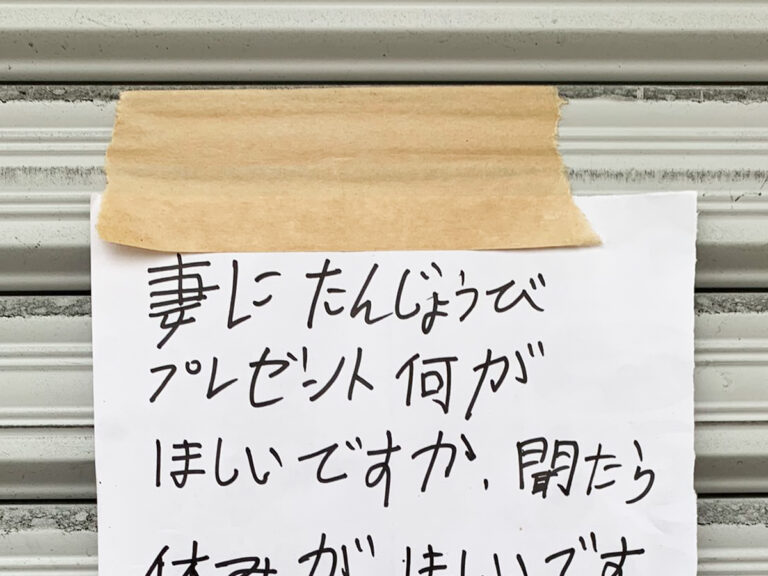 妻にたんじょうび
プレゼント何が
ほしいですか、聞たら
休みがほしいです